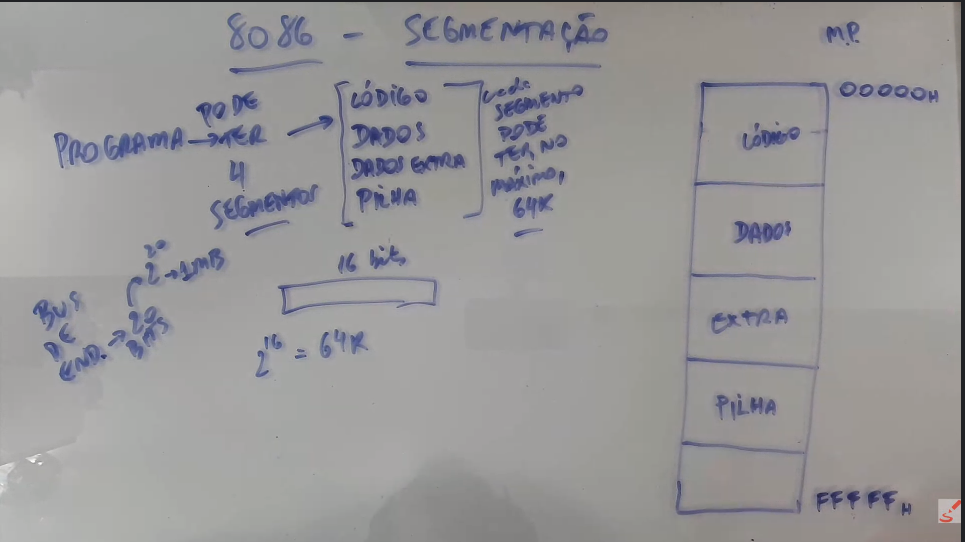 8086 - SEGMENTAÇÃO
M.P.
PROGRAMA → PODE
TER
4
SEGMENTOS
→
CÓDIGO
DADOS
DADOS EXTRA
PILHA
cada
SEGMENTO
PODE
TER, NO
máximo,
64K
BUS
DE
END. → 20
BITS
2^20 → 1MB
16 bits
2^16 = 64K
00000H
CÓDIGO
DADOS
EXTRA
PILHA
FFFFFH